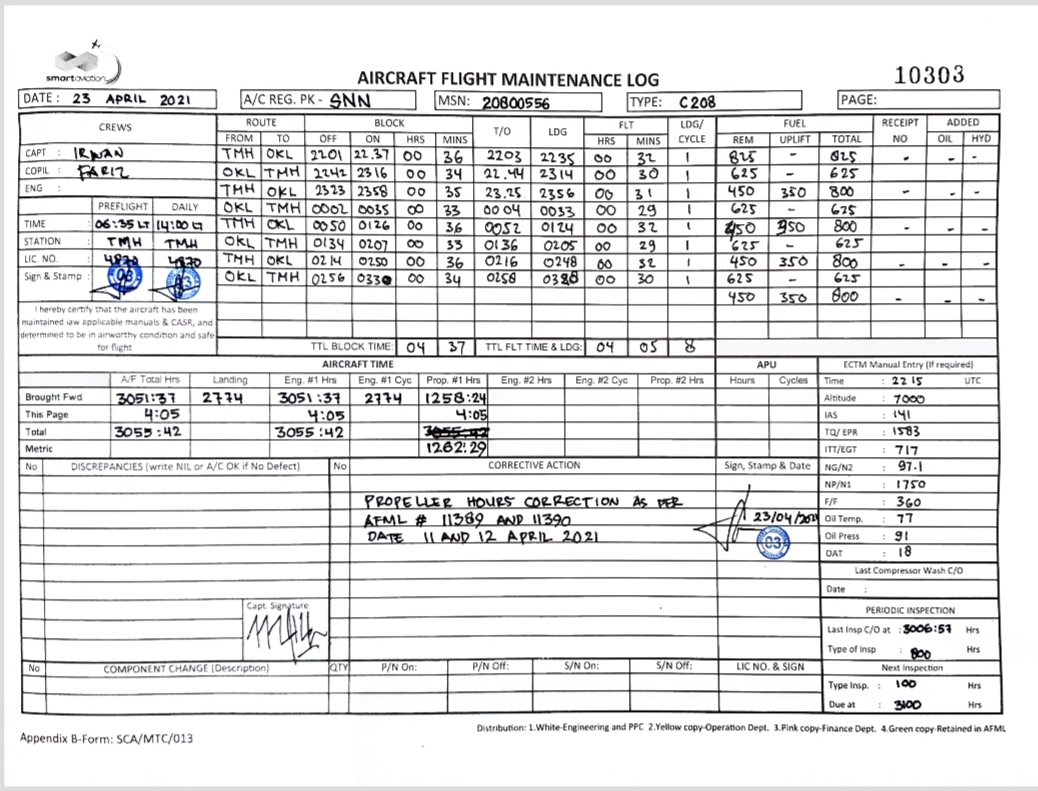 smartaviation
AIRCRAFT FLIGHT MAINTENANCE LOG
10303
DATE : 23 APRIL 2021 A/C REG. PK - SNN MSN: 20800556 TYPE: C208 PAGE:
CREWS ROUTE BLOCK T/O LDG FLT LDG/ CYCLE FUEL RECEIPT NO ADDED
FROM TO OFF ON HRS MINS HRS MINS REM UPLIFT TOTAL OIL HYD
CAPT : IRWAN TMH OKL 2201 22.37 00 36 2203 2235 00 32 1 825 - 825 - - -
COPIL : FARIZ OKL TMH 2242 2316 00 34 22.44 2314 00 30 1 625 - 625
ENG : TMH OKL 2323 2358 00 35 23.25 2356 00 31 1 450 350 800 - - -
PREFLIGHT DAILY OKL TMH 0002 0035 00 33 0004 0033 00 29 1 625 - 625
TIME : 06:35 LT 14:00 LT TMH OKL 0050 0126 00 36 0052 0124 00 32 1 450 350 800 - - -
STATION : TMH TMH OKL TMH 0134 0207 00 33 0136 0205 00 29 1 625 - 625
LIC. NO. : 4870 4870 TMH OKL 0214 0250 00 36 0216 0248 00 32 1 450 350 800 - - -
Sign & Stamp : 03 03 OKL TMH 0256 0330 00 34 0258 0328 00 30 1 625 - 625
450 350 800 - - -
I hereby certify that the aircraft has been
maintained iaw applicable manuals & CASR, and
determined to be in airworthy condition and safe
for flight
TTL BLOCK TIME: 04 37 TTL FLT TIME & LDG: 04 05 8
AIRCRAFT TIME APU ECTM Manual Entry (If required)
A/F Total Hrs Landing Eng. #1 Hrs Eng. #1 Cyc Prop. #1 Hrs Eng. #2 Hrs Eng. #2 Cyc Prop. #2 Hrs Hours Cycles Time : 2215 UTC
Brought Fwd 3051:37 2774 3051:37 2774 1258:24 Altitude : 7000
This Page 4:05 4:05 4:05 IAS : 141
Total 3055:42 3055:42 3055:42 TQ/ EPR : 1583
Metric 1262:29 ITT/EGT : 717
No DISCREPANCIES (write NIL or A/C OK if No Defect) No CORRECTIVE ACTION Sign, Stamp & Date NG/N2 : 97.1
NP/N1 : 1750
PROPELLER HOURS CORRECTION AS PER F/F : 360
AFML # 11389 AND 11390 23/04/2021 Oil Temp. : 77
DATE 11 AND 12 APRIL 2021 03 Oil Press : 91
OAT : 18
Last Compressor Wash C/O
Date :
Capt. Signature PERIODIC INSPECTION
Last Insp C/O at : 3006:57 Hrs
Type of Insp : 800 Hrs
No COMPONENT CHANGE (Description) QTY P/N On: P/N Off: S/N On: S/N Off: LIC NO. & SIGN Next Inspection
Type Insp. : 100 Hrs
Due at : 3100 Hrs
Appendix B-Form: SCA/MTC/013
Distribution: 1.White-Engineering and PPC 2.Yellow copy-Operation Dept. 3.Pink copy-Finance Dept. 4.Green copy-Retained in AFML